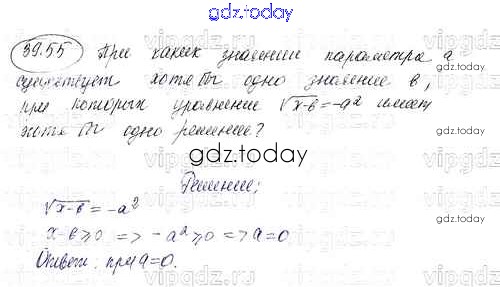 gdz.today
39.55 При каких значении параметра a
существует хотя бы одно значение в,
при которых уравнение √x-в = -a² имеет
хотя бы одно решение?
gdz.today
Решение;
√x-в = -a²
x-в ≥ 0 => -a² ≥ 0 => a=0
Ответ: при a=0.
gdz.today